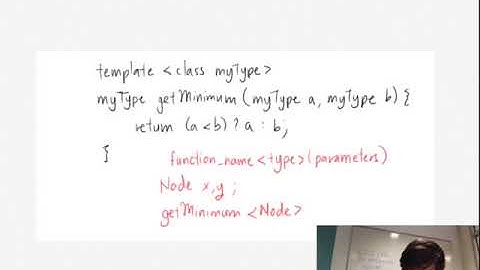 template <class myType>
myType getMinimum (myType a, myType b) {
return (a<b) ? a : b;
}
function_name <type> (parameters)
Node x,y ;
getMinimum <Node>